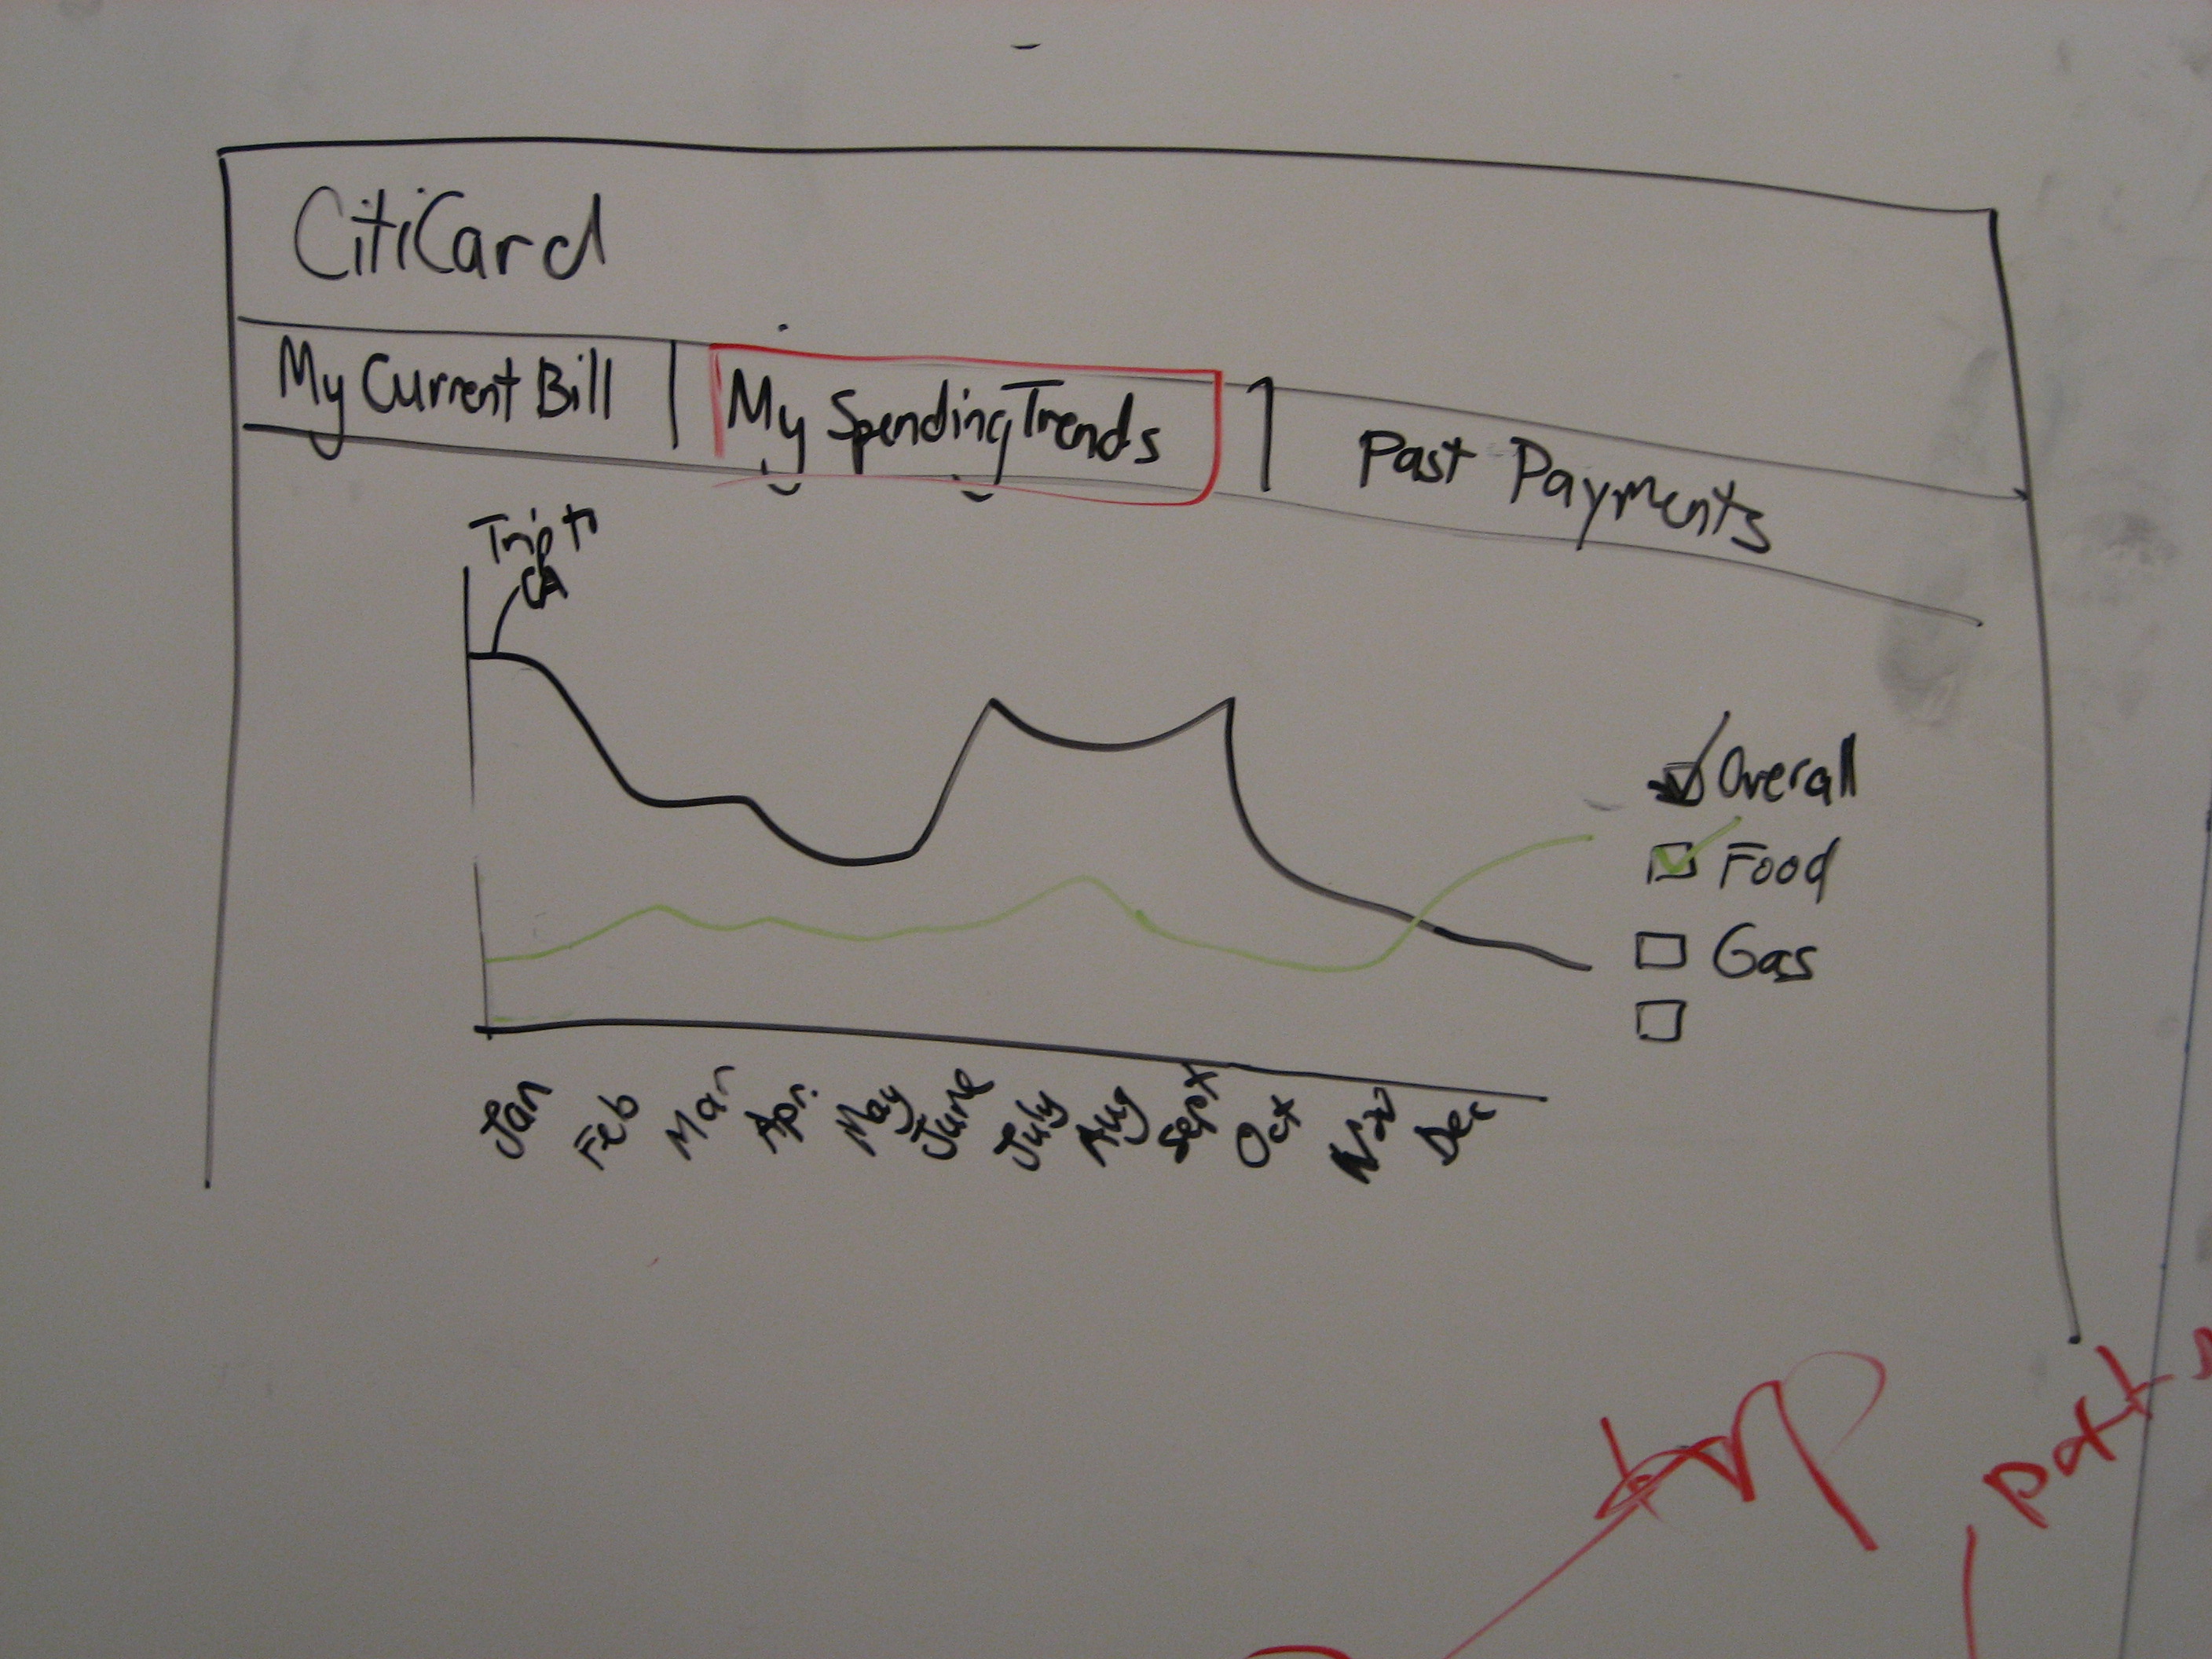 CitiCard
My Current Bill | My Spending Trends | Past Payments
Trip to
CA
Overall
Food
Gas
Jan Feb Mar Apr. May June July Aug Sept Oct Nov Dec
trip